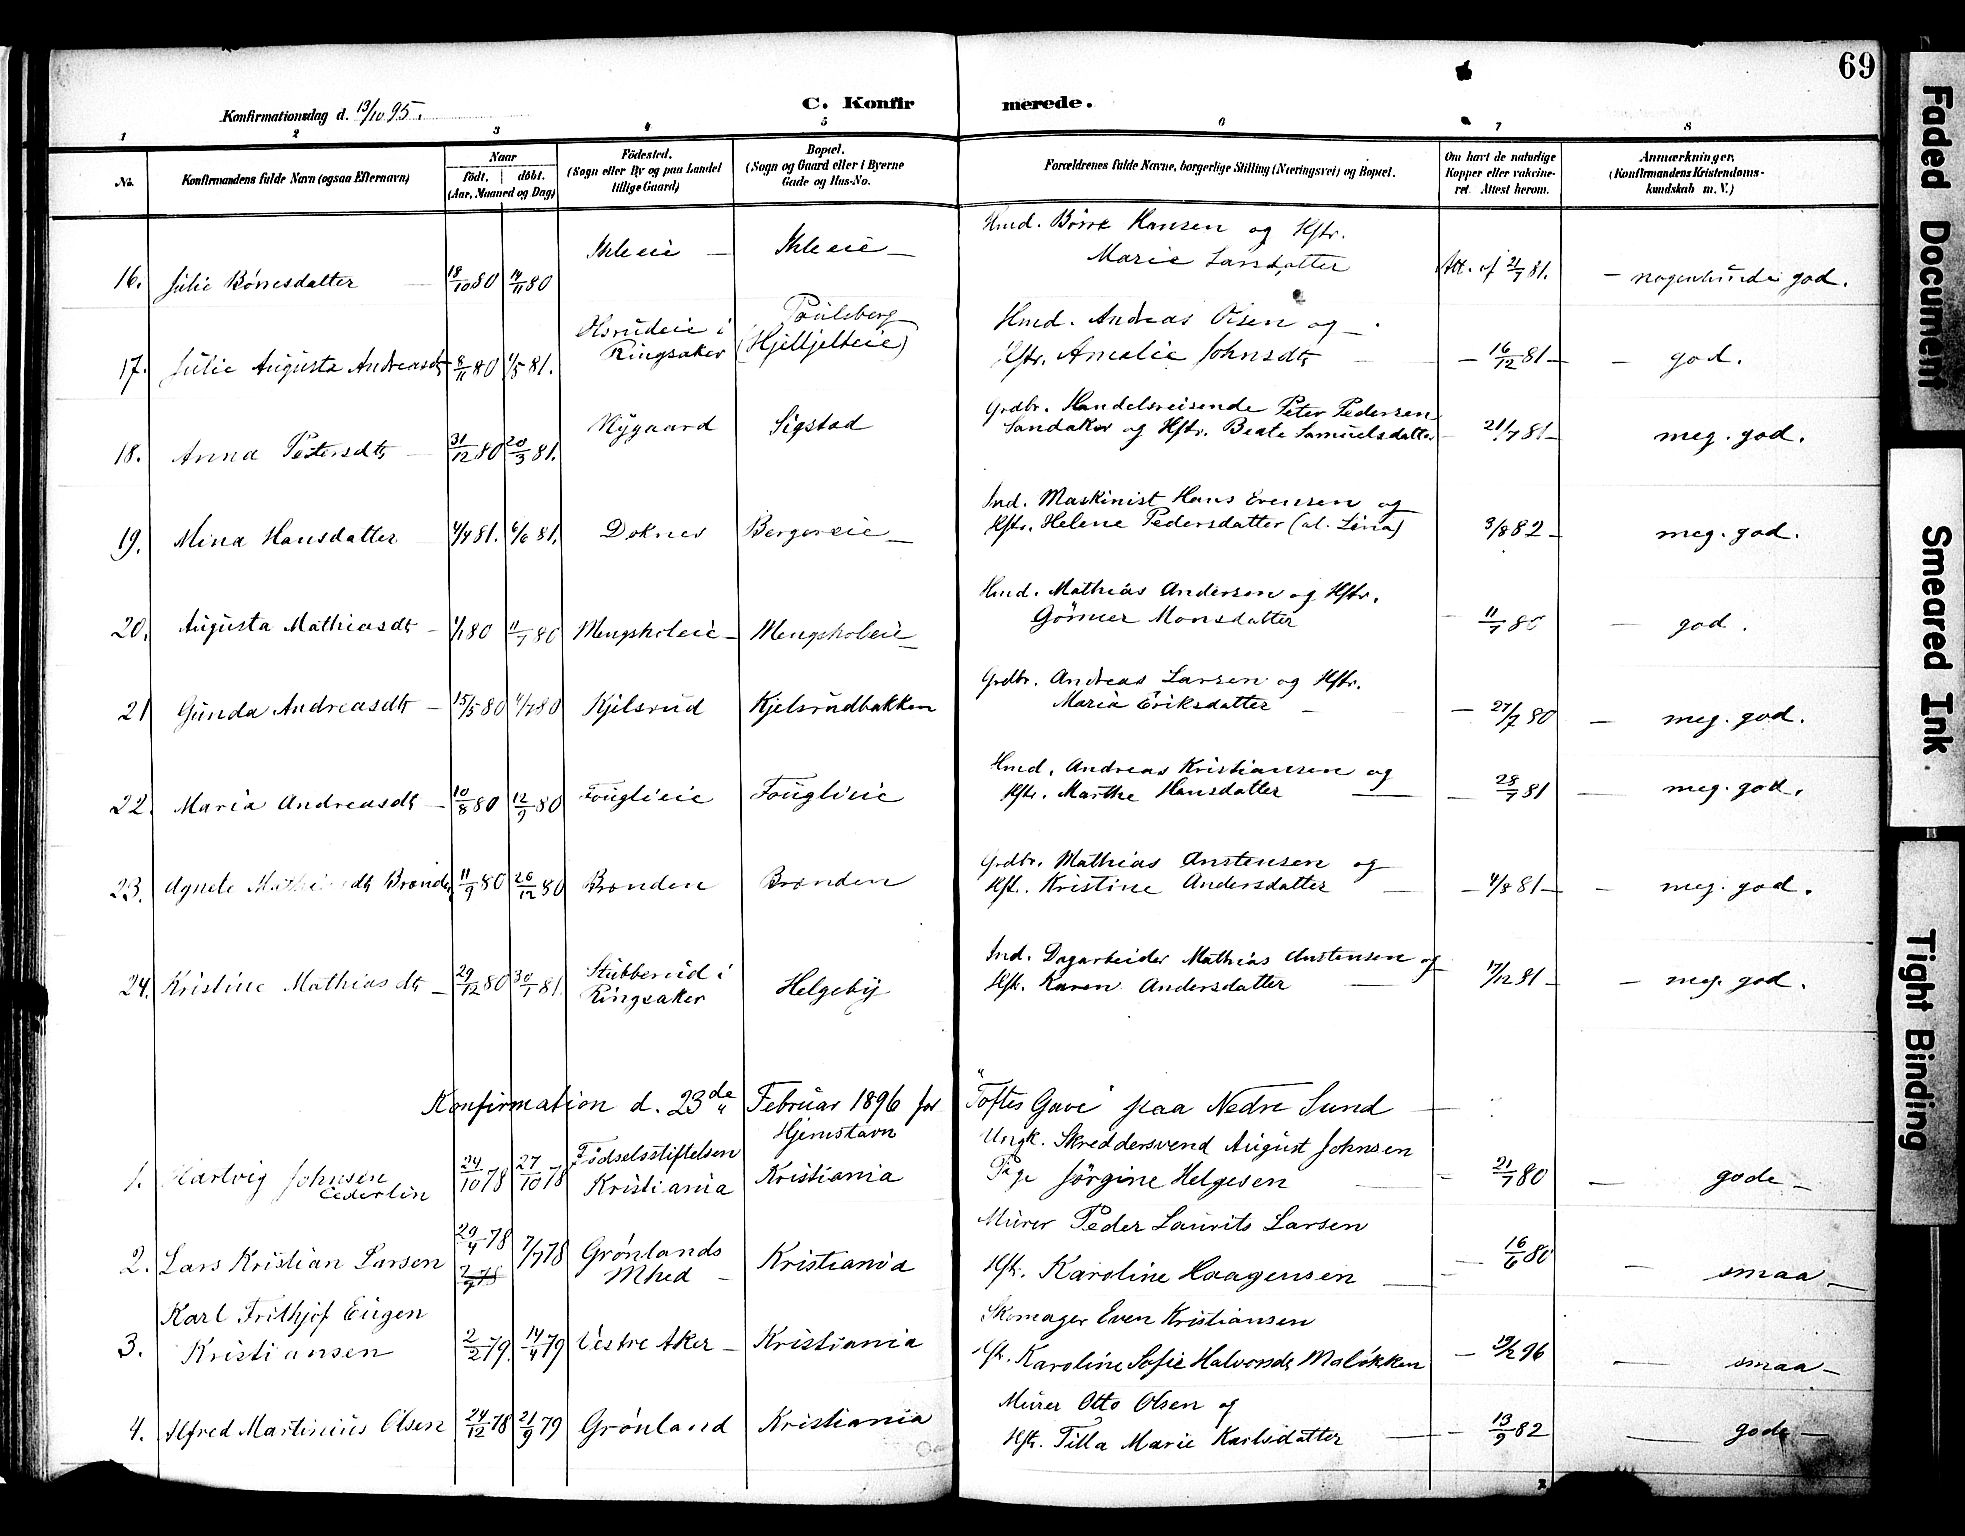 69
Konfirmationsdag d. 13/10 95.
C. Konfir merede.
1 2 3 4 5 6 7 8
No.
Konfirmandens fulde Navn (ogsaa Efternavn)
Naar
födt. döbt.
(Aar, Maaned og Dag)
Födested.
(Sogn eller By og paa Landet
tillige Gaard)
Bopæl.
(Sogn og Gaard eller i Byerne
Gade og Hus-No.
Forældrenes fulde Navne, borgerlige Stilling (Næringsvei) og Bopæl.
Om havt de naturlige
Kopper eller vakcine-
ret. Attest herom.
Anmærkninger.
(Konfirmandens Kristendoms-
kundskab m. V.)
Hmd. Börre Hansen og Hstr.
16. Julie Börresdatter 18/10 80 14/11 80 Ihleeie — Ihleeie — Marie Larsdatter Att. af 21/7 81. — nogenlunde god.
Poulsberg
Hmd. Andreas Olsen og
17. Julie Augusta Andreasdt 8/11 80 1/5 81. Olsrudeie i Ringsaker (Hjelljelteie) Hstr. Amalie Johnsdt — 16/12 81 — god.
Grdbr. Handelsreisende Peter Pedersen
18. Anna Petersdt 31/12 80 20/3 81. Nygaard Sigstad Sandaker og Hstr. Beate Samuelsdatter 21/7 81 — meg. god.
Ind. Maskinist Hans Evensen og
19. Mina Hansdatter 4/4 81. 6/6 81. Doknes Bergereie — Hstr. Helene Pedersdatter (al. Lina) 3/8 82 — meg. god.
Hmd. Mathias Andersen og Hstr.
20. Augusta Mathiasdt — 1/1 80 11/7 80 Mengskoleie — Mengskoleie — Gönner Monsdatter — 11/7 80 — god.
Grdbr. Andreas Larsen og Hstr.
21 Gunda Andreasdt — 15/5 80 4/7 80 Kjelsrud Kjelsrudbakken Maria Eriksdatter — 27/7 80 — meg. god.
Hmd. Andreas Kristiansen og
22. Maria Andreasdt — 10/8 80 12/9 80 Fouglieie Fouglieie Hstr. Marthe Hansdatter — 28/7 81 — meg. god.
Grdbr. Mathias Anstensen og
23. Agnete Mathiasdt Brænden 11/9 80 26/12 80 Brænden Brænden Hst. Kristine Andersdatter — 4/8 81 — meg. god.
Ind. Dagarbeider Mathias Anstensen og
24. Kristine Mathiasdt — 29/12 80 30/1 81. Stubberud i Ringsaker Helgeby Hst. Karen Andersdatter — 17/12 81 — meg. god.
Konfirmation d. 23de Februar 1896 for "Toftes Gave" paa Nedre Sund
Hjemstavn Ungk. Skreddersvend August Johnsen
1. Hartvig Johnsen Cederlin 24/10 78 27/10 78 Födselsstiftelsen Kristiania Kristiania Pige Jörgine Helgesen — 21/7 80 — gode —
Murer Peder Laurits Larsen
2. Lars Kristian Larsen 29/4 78 7/7 78 Grönlands Mhed — Kristiania Hst. Karoline Haagensen — 16/6 80 — smaa —
Karl Frithjof Eugen Skomager Even Kristiansen
3. Kristiansen 2/2 79. 14/4 79 Vestre Aker — Kristiania Hst. Karoline Sofie Halvorsdt Maløkken — 19/2 96 — smaa —
Murer Otto Olsen og
4. Alfred Martinius Olsen 24/12 78 21/9 79 Grönland Kristiania Hstr. Tilla Marie Karlsdatter — 13/9 82 — gode —
Faded Document
Smeared Ink.
Tight Binding